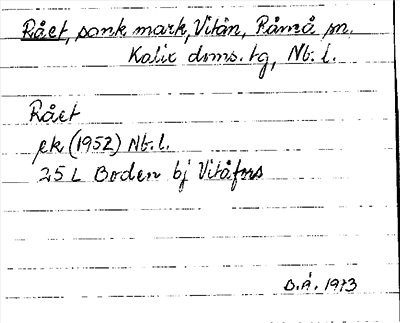 Rået, sank mark, Vitån, Råneå sn.
Kalix doms. tg, Nb. l.
Rået
ek (1952) Nb. l.
25 L Boden bj Vitåfors
D.Å. 1973